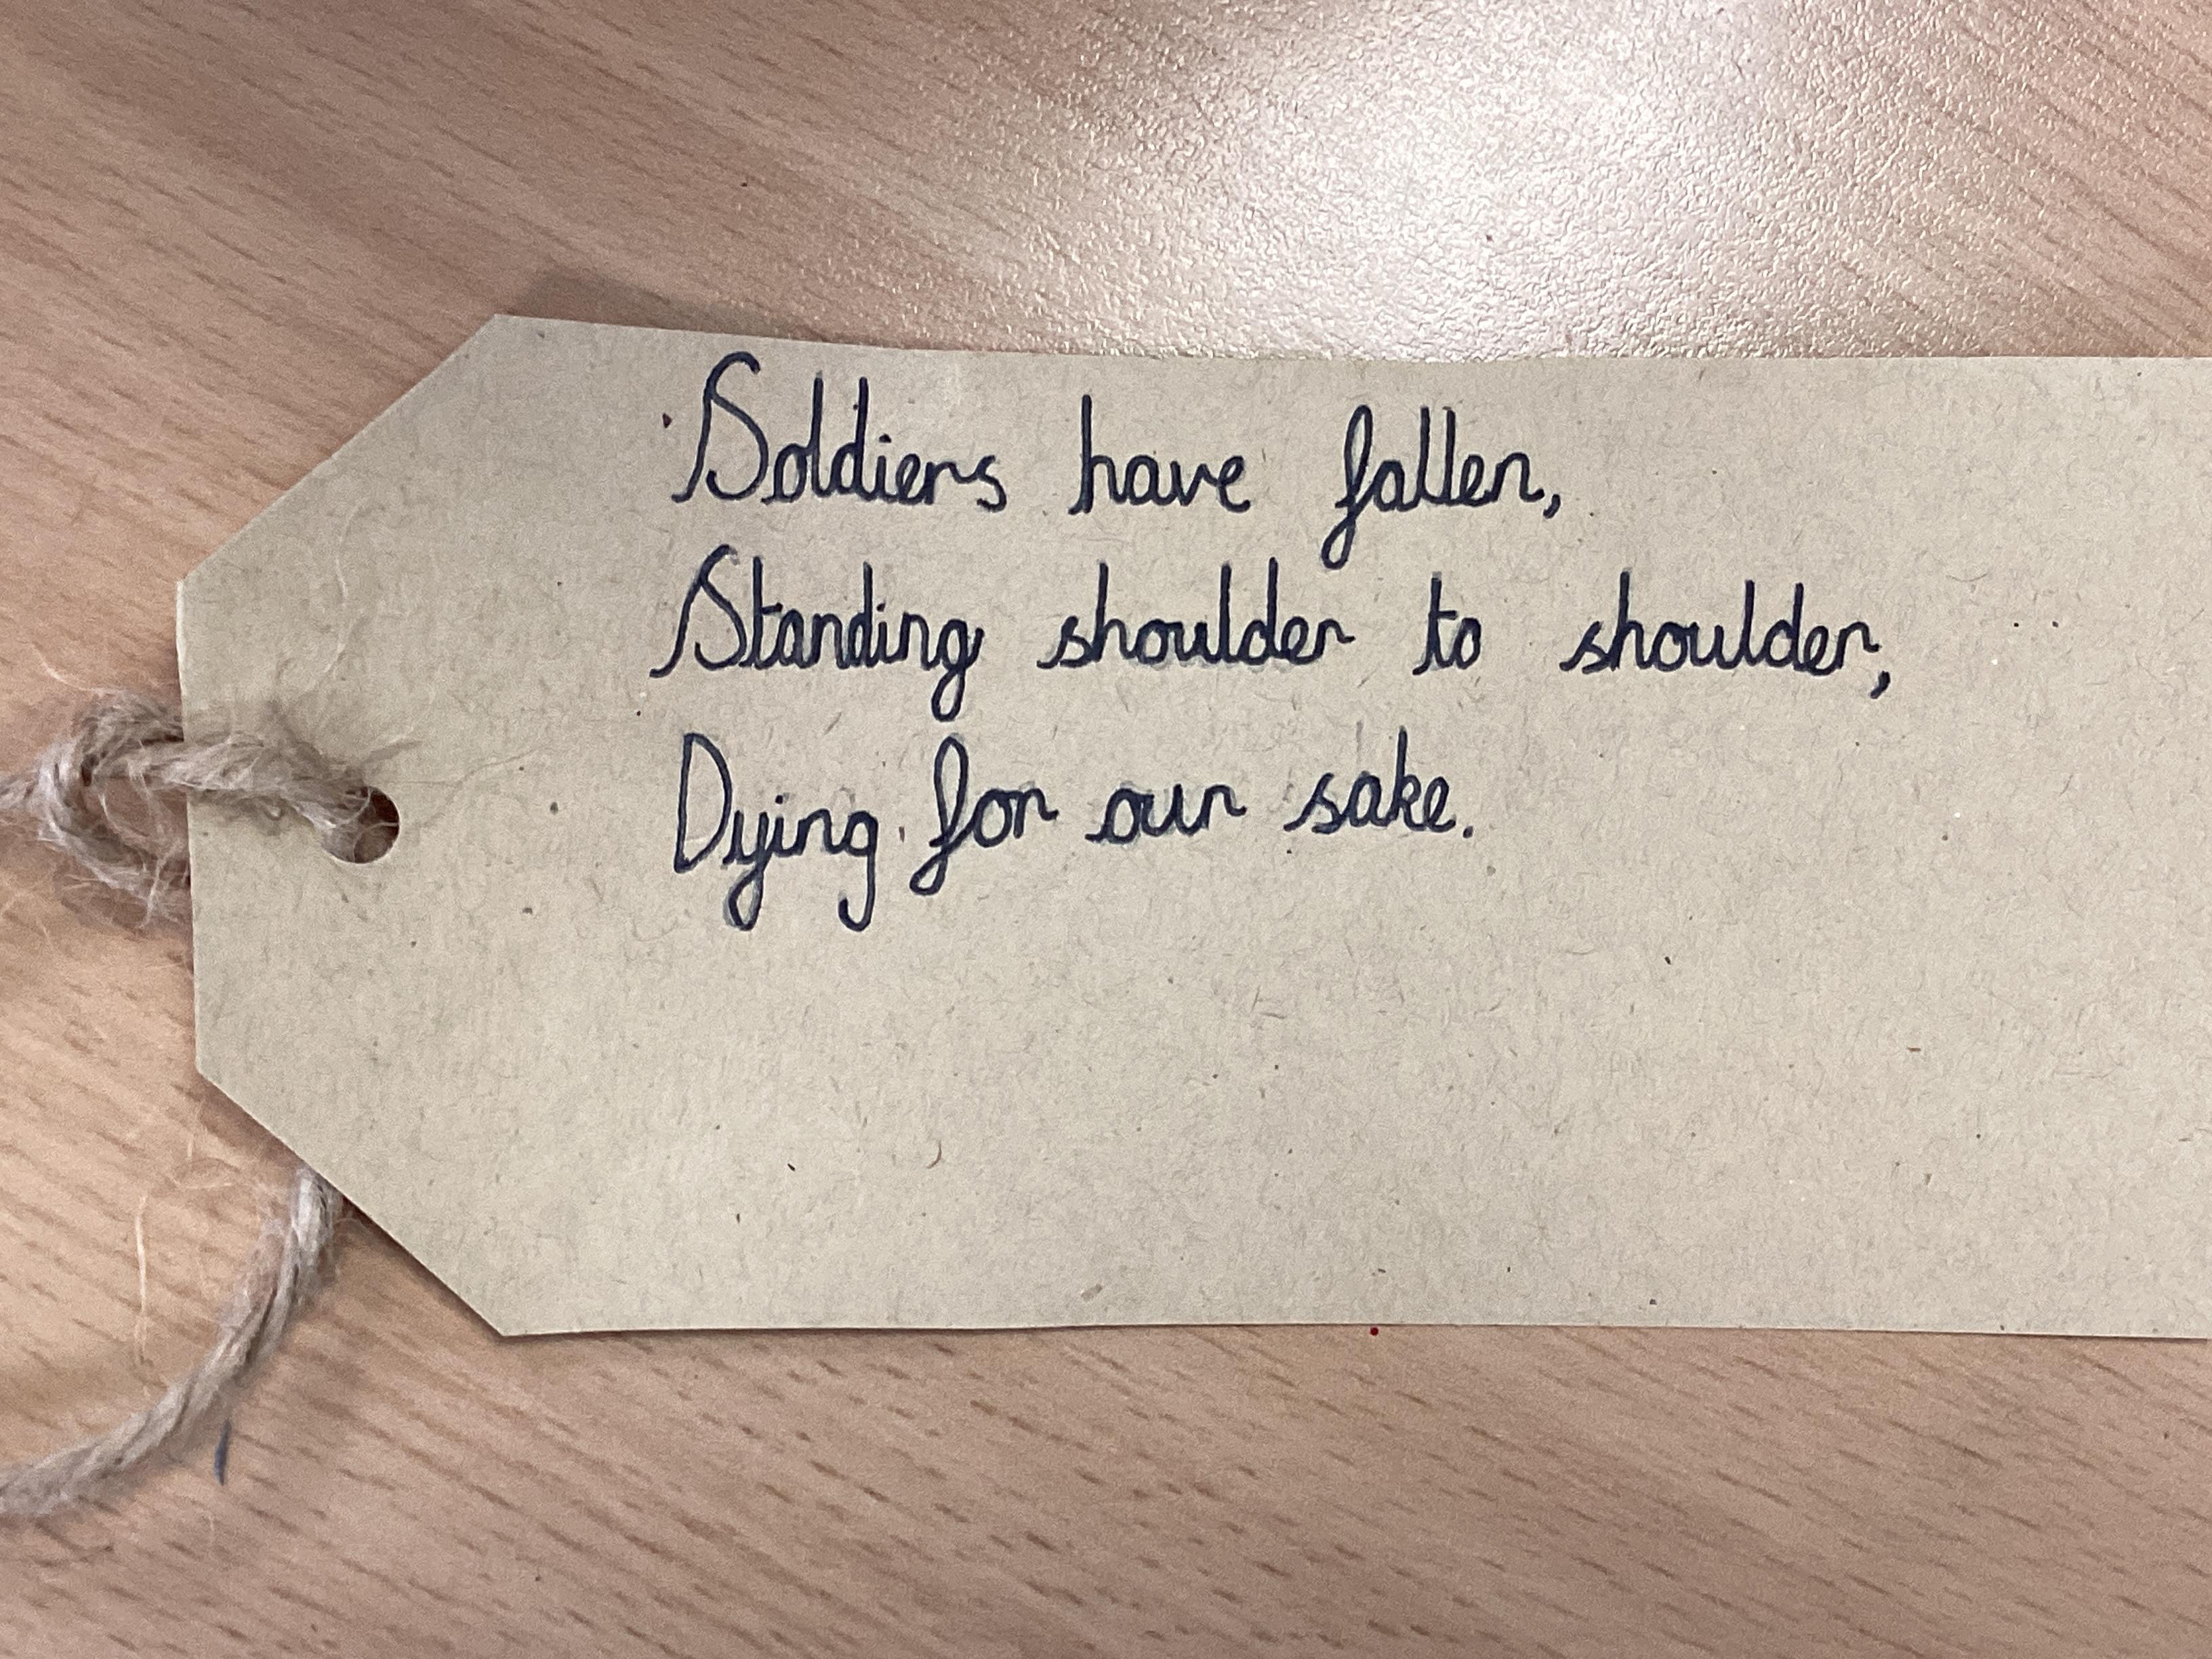 Soldiers have fallen,
Standing shoulder to shoulder,
Dying for our sake.